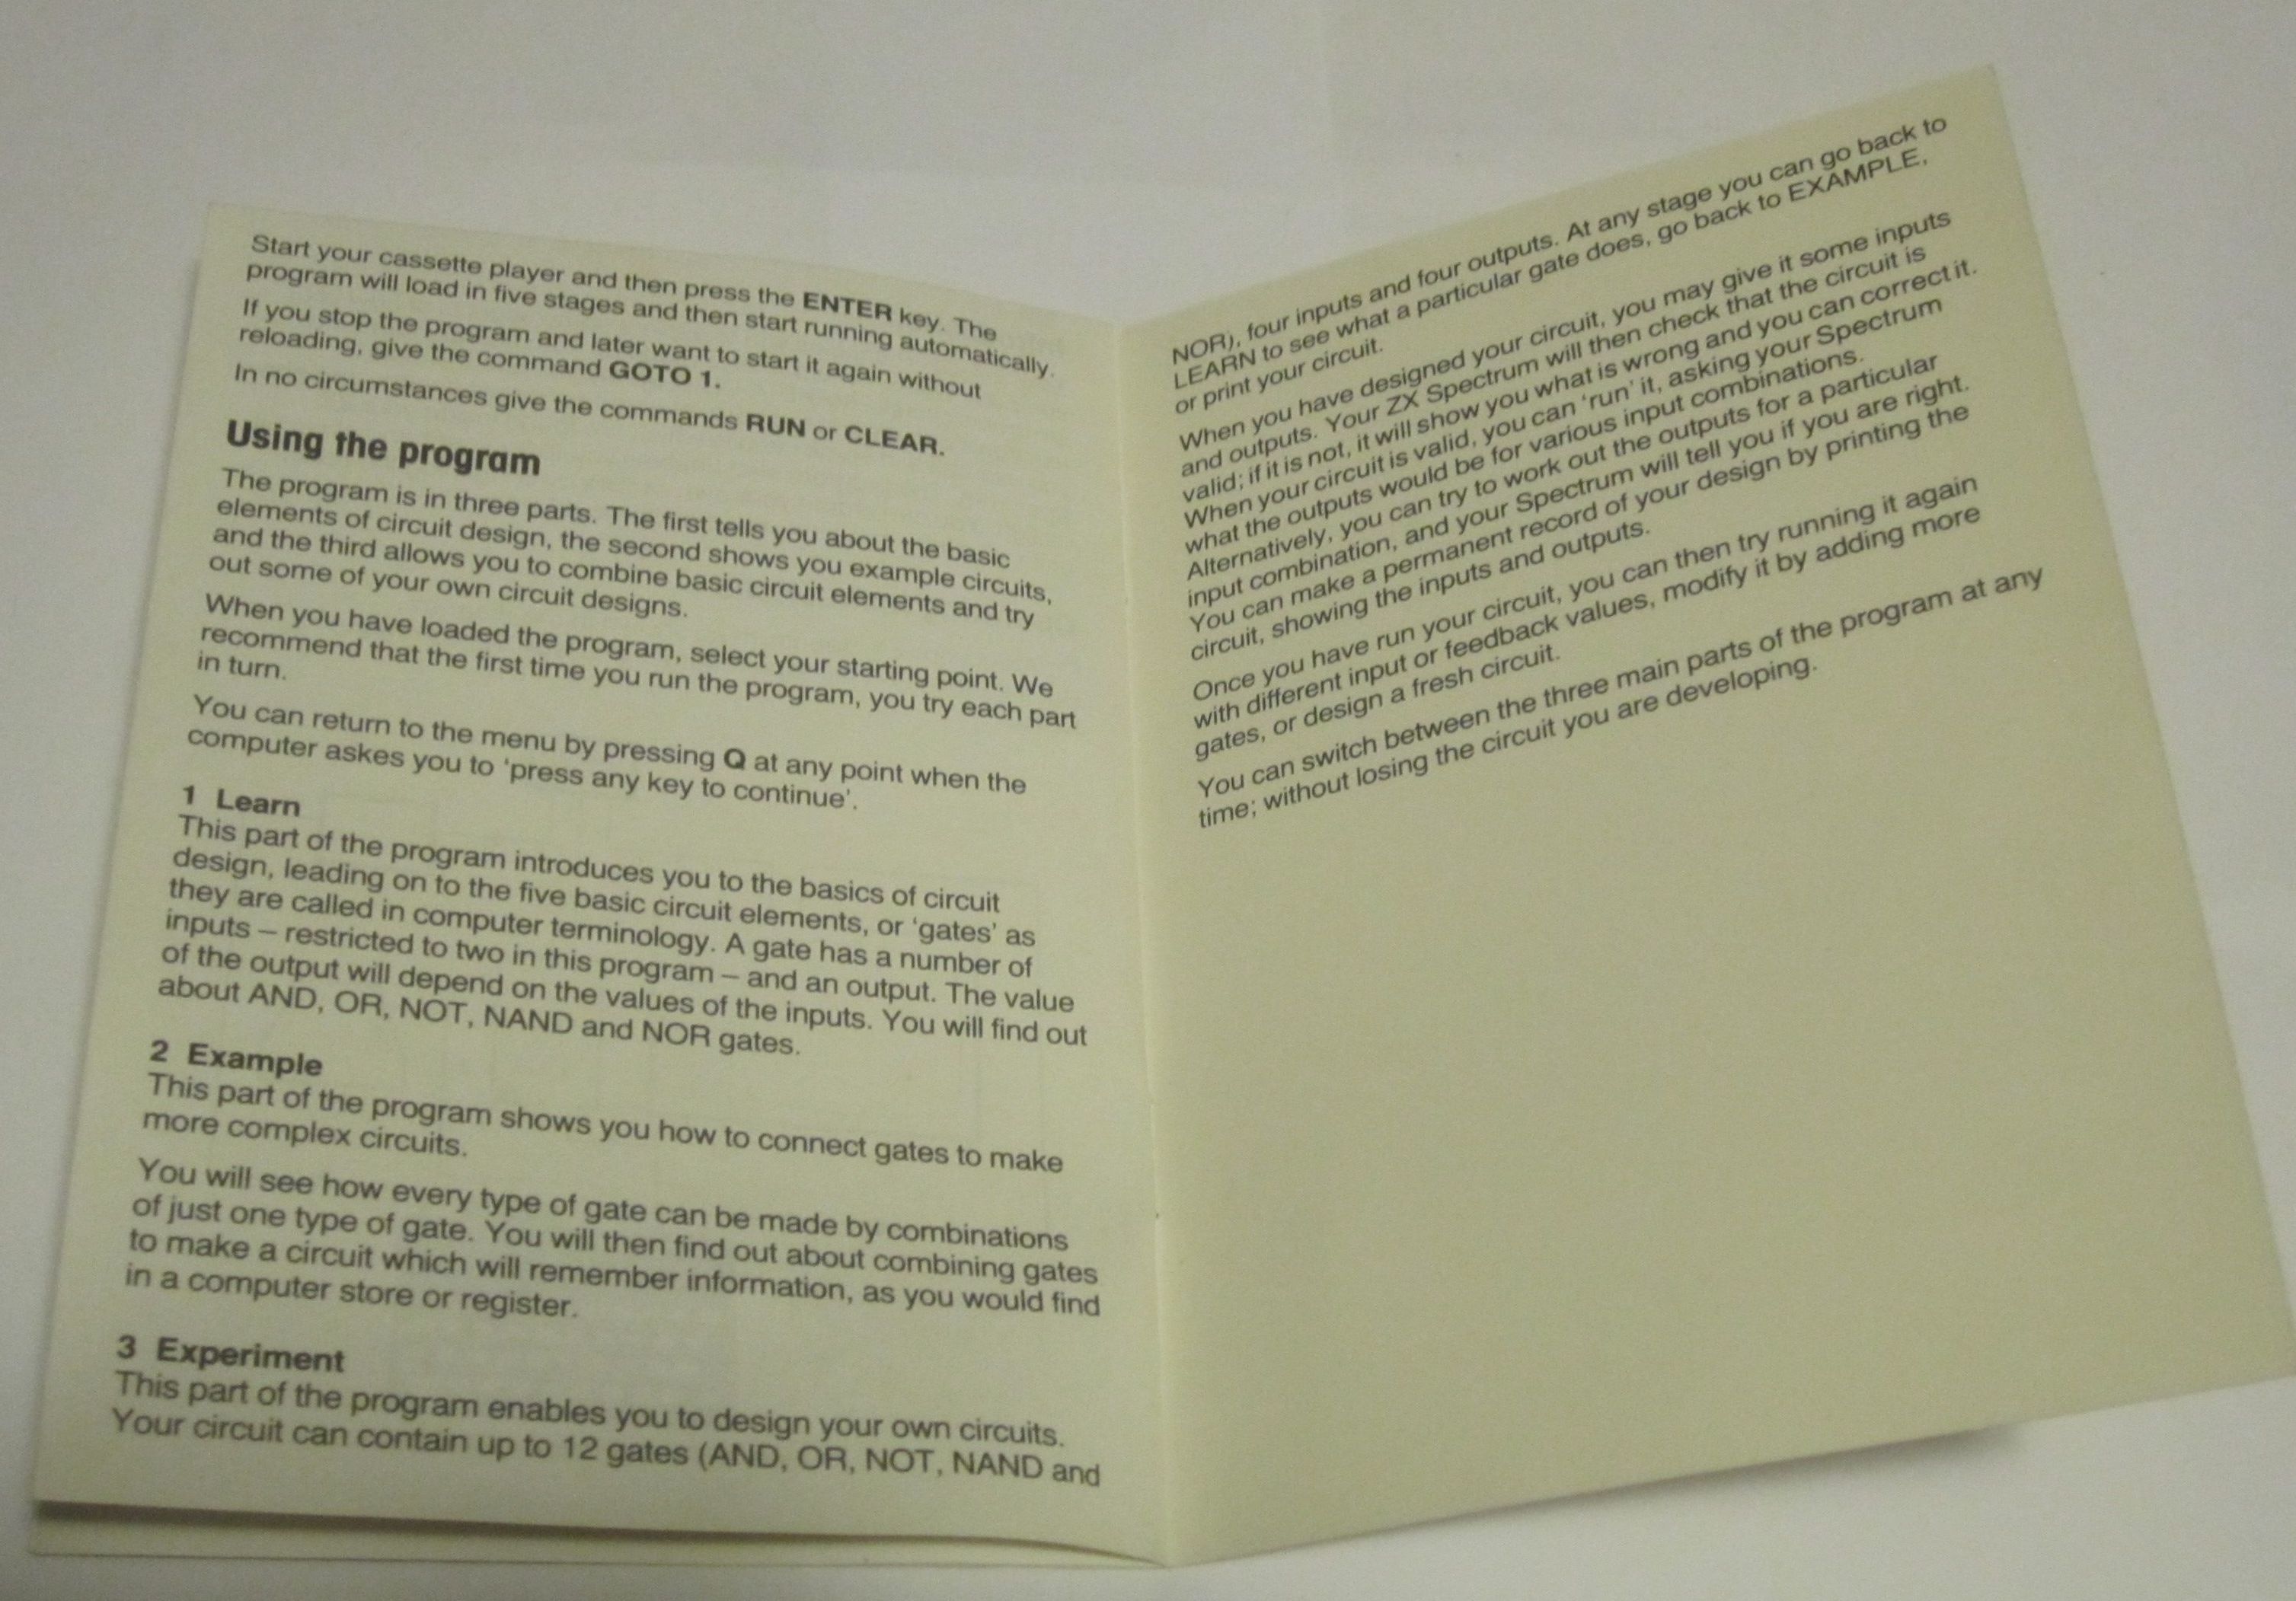 Start your cassette player and then press the ENTER key. The
program will load in five stages and then start running automatically.
If you stop the program and later want to start it again without
reloading, give the command GOTO 1.
In no circumstances give the commands RUN or CLEAR.
Using the program
The program is in three parts. The first tells you about the basic
elements of circuit design, the second shows you example circuits,
and the third allows you to combine basic circuit elements and try
out some of your own circuit designs.
When you have loaded the program, select your starting point. We
recommend that the first time you run the program, you try each part
in turn.
You can return to the menu by pressing Q at any point when the
computer askes you to ‘press any key to continue’.
1 Learn
This part of the program introduces you to the basics of circuit
design, leading on to the five basic circuit elements, or ‘gates’ as
they are called in computer terminology. A gate has a number of
inputs – restricted to two in this program – and an output. The value
of the output will depend on the values of the inputs. You will find out
about AND, OR, NOT, NAND and NOR gates.
2 Example
This part of the program shows you how to connect gates to make
more complex circuits.
You will see how every type of gate can be made by combinations
of just one type of gate. You will then find out about combining gates
to make a circuit which will remember information, as you would find
in a computer store or register.
3 Experiment
This part of the program enables you to design your own circuits.
Your circuit can contain up to 12 gates (AND, OR, NOT, NAND and
NOR), four inputs and four outputs. At any stage you can go back to
LEARN to see what a particular gate does, go back to EXAMPLE,
or print your circuit.
When you have designed your circuit, you may give it some inputs
and outputs. Your ZX Spectrum will then check that the circuit is
valid; if it is not, it will show you what is wrong and you can correct it.
When your circuit is valid, you can ‘run’ it, asking your Spectrum
what the outputs would be for various input combinations.
Alternatively, you can try to work out the outputs for a particular
input combination, and your Spectrum will tell you if you are right.
You can make a permanent record of your design by printing the
circuit, showing the inputs and outputs.
Once you have run your circuit, you can then try running it again
with different input or feedback values, modify it by adding more
gates, or design a fresh circuit.
You can switch between the three main parts of the program at any
time; without losing the circuit you are developing.